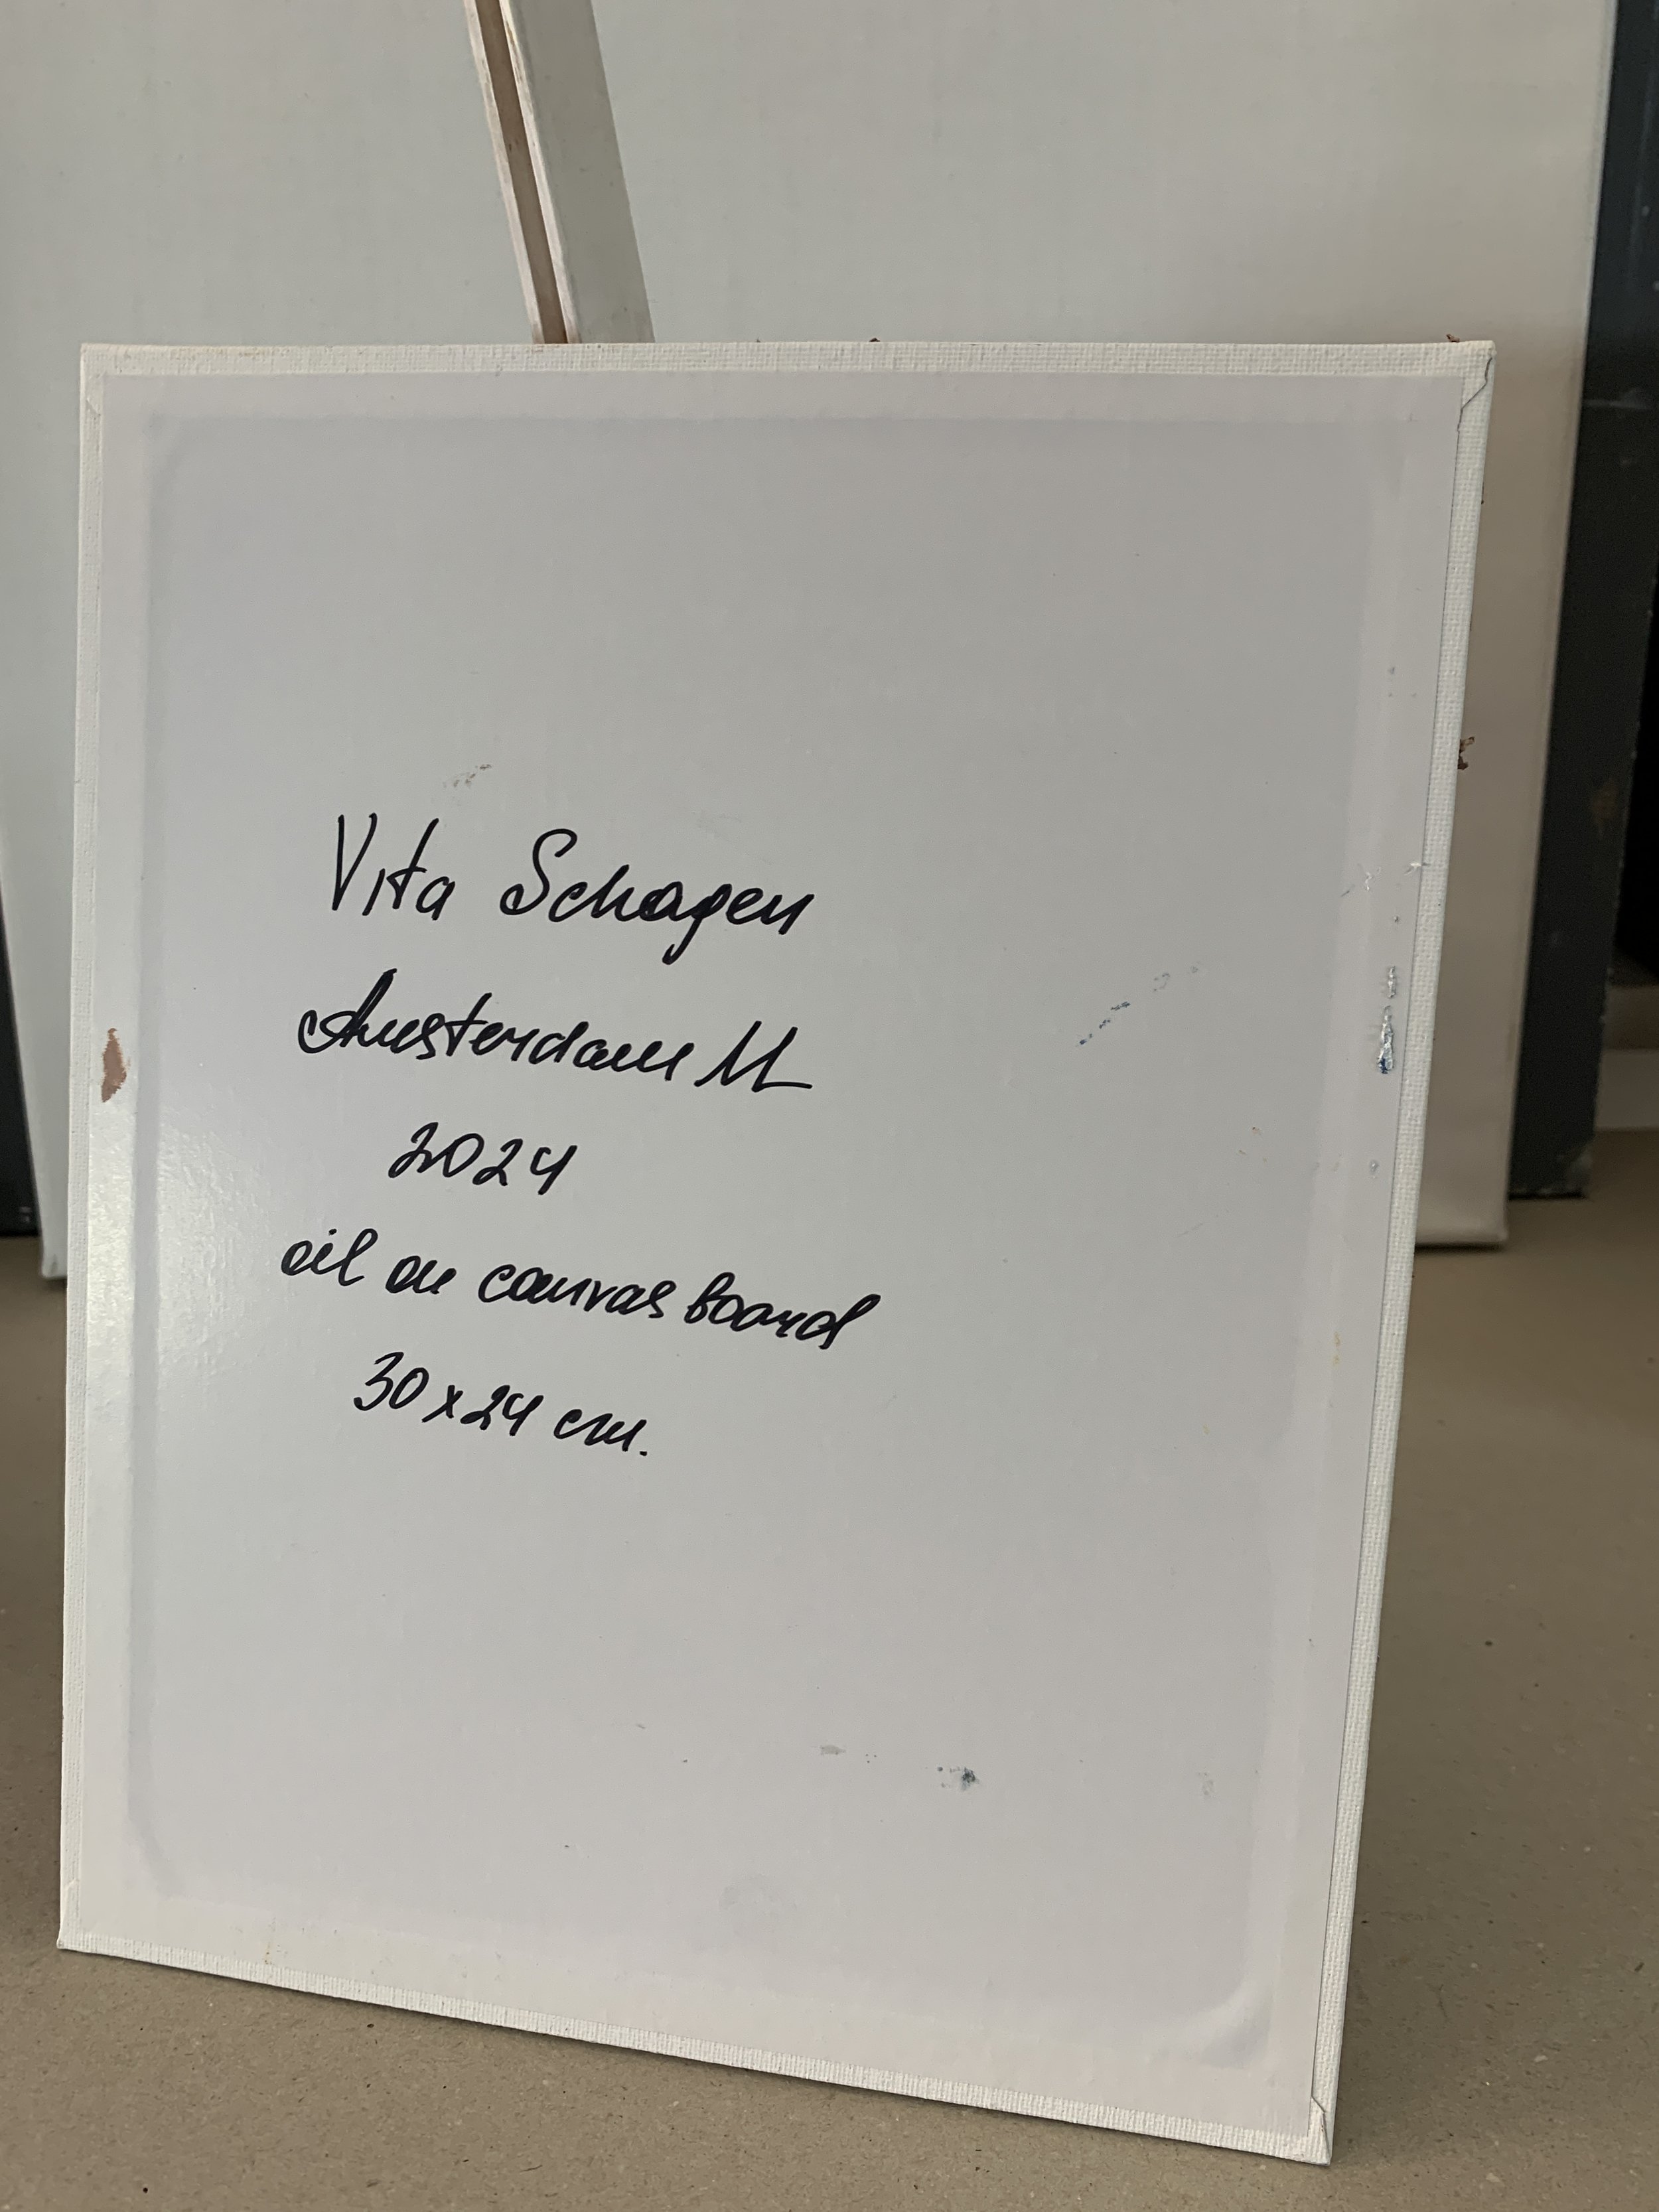 Vita Schagen
Amsterdam NL
2024
oil on canvas board
30x24 cm.